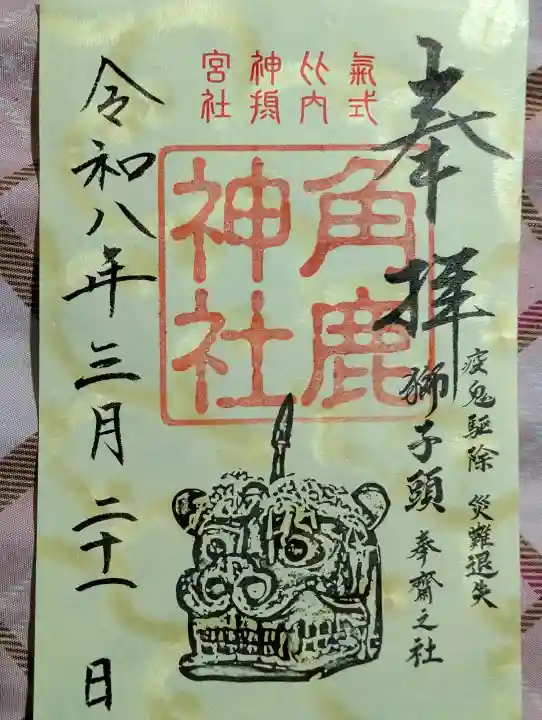 奉拝
疫鬼駆除 災難退失
獅子頭 奉齋之社
式内
氣比
神宮
摂社
角鹿
神社
令和八年三月二十一日